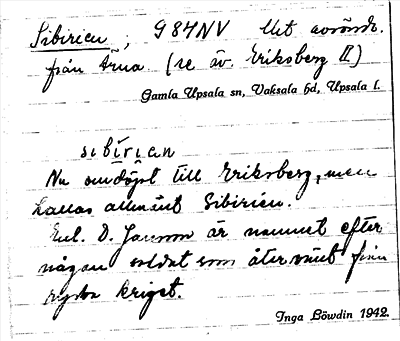 Sibirien, 984NV Utt avsöndr.
från Ärna (se äv. Eriksberg II)
Gamla Upsala sn, Vaksala hd, Upsala l.
sıbírıen
Nu omdöpt till Eriksberg, men
kallas allmänt Sibirien.
Enl. D. Jansson är namnet efter
någon soldat som återvänt från
ryska kriget.
Inga Löwdin 1942.